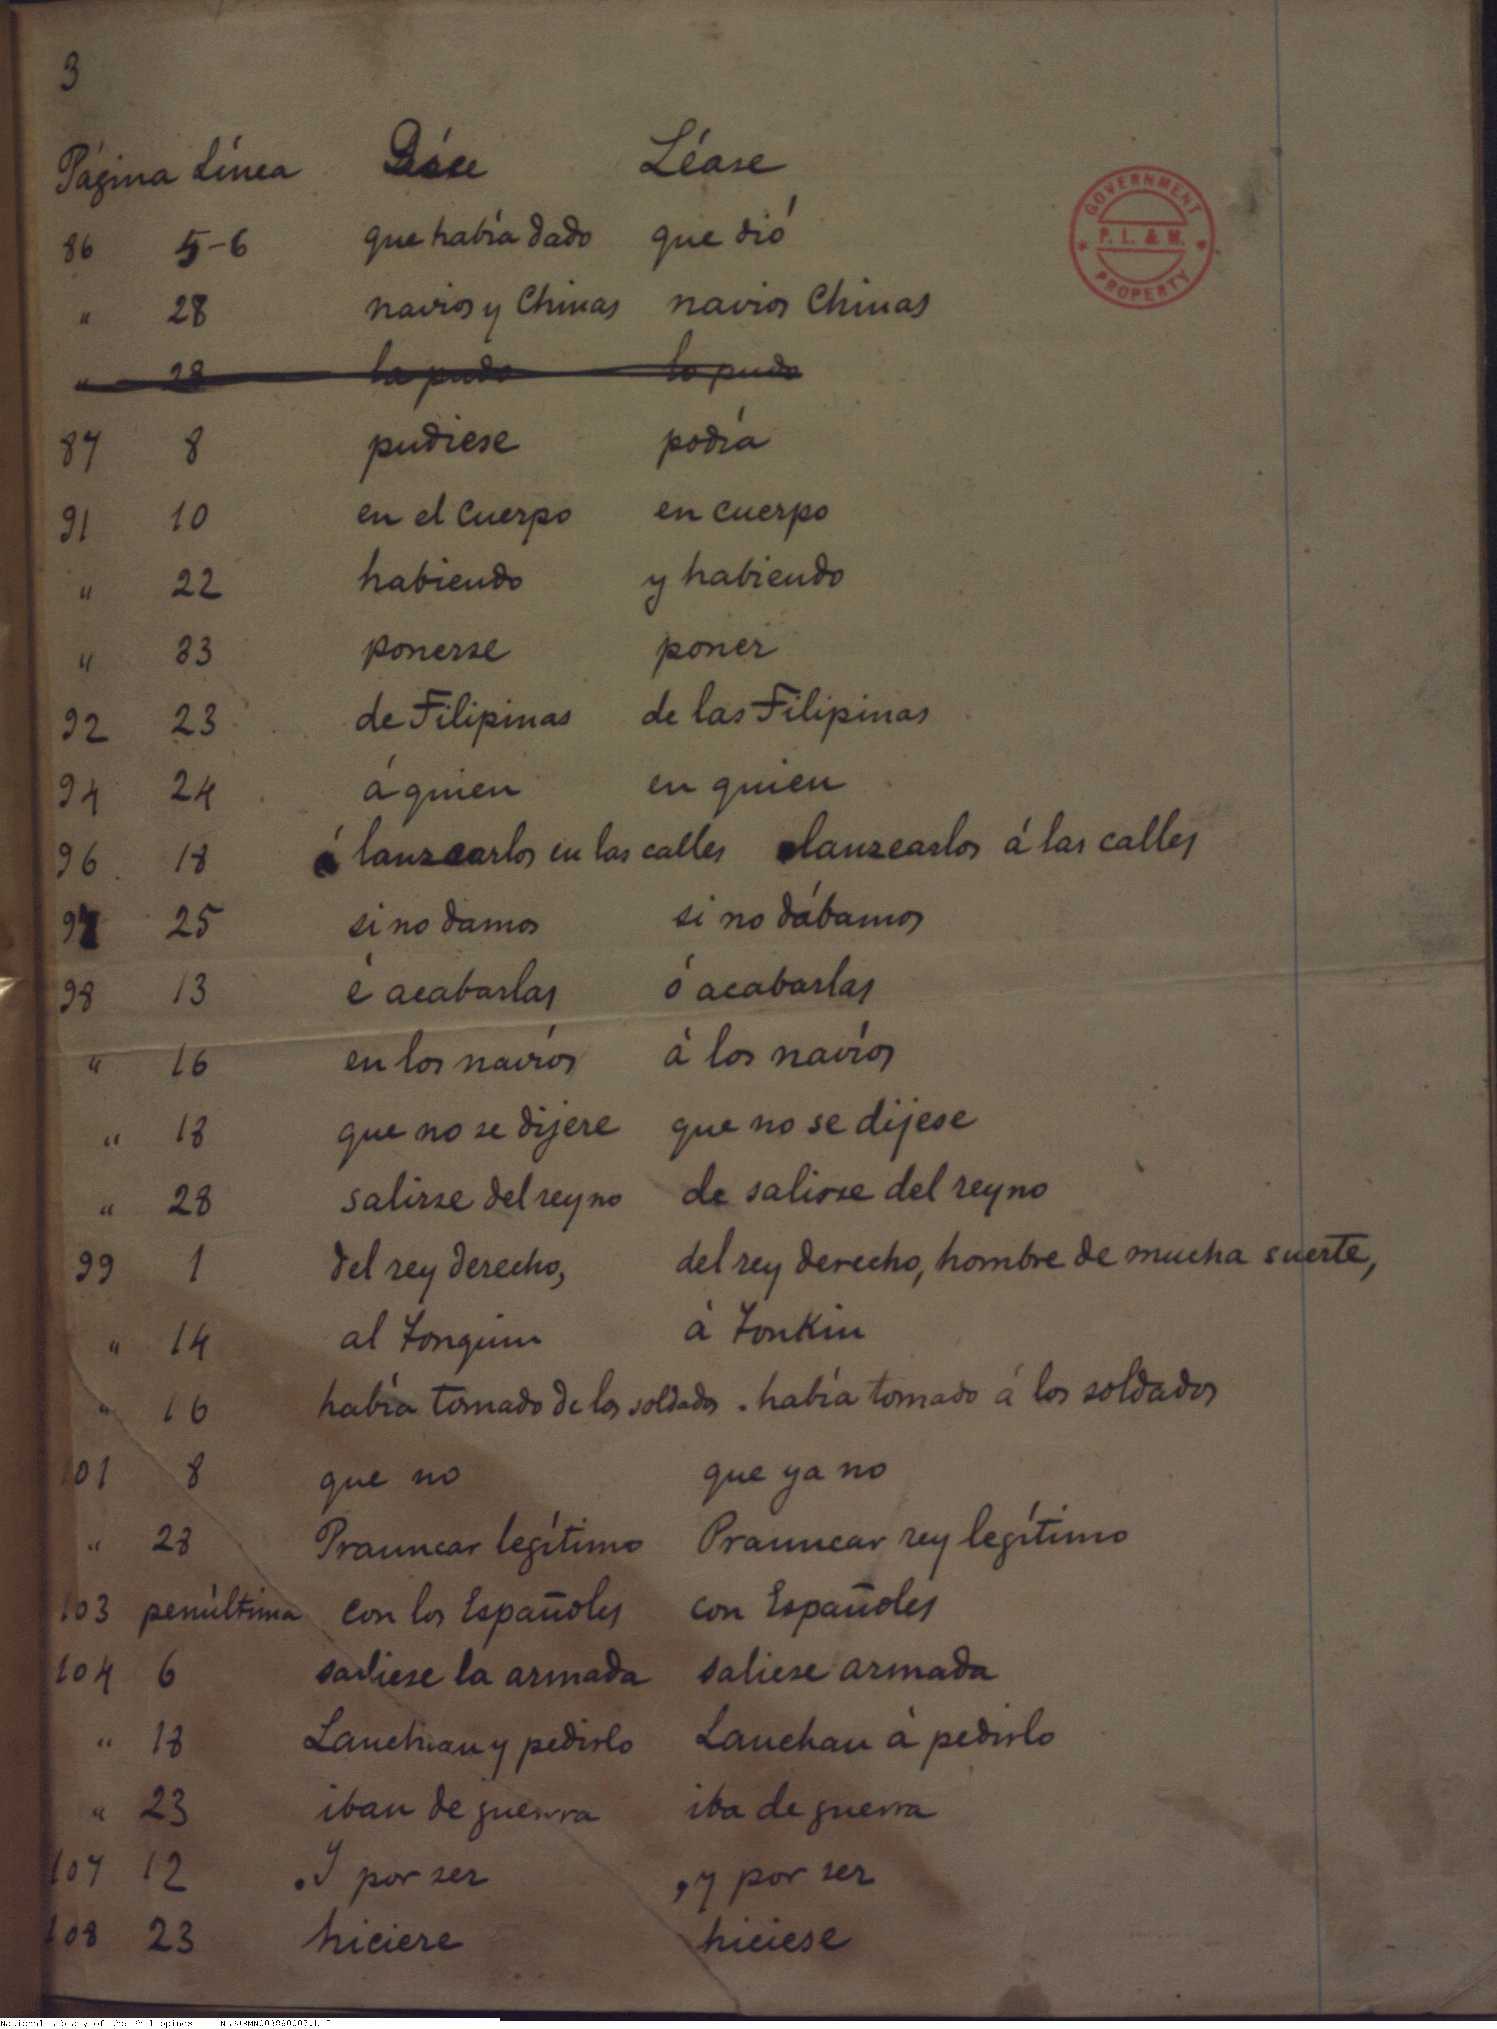 3
Página Línea Dice Léase
GOVERNMENT
P. L. & M.
PROPERTY
86 5-6 que había dado que dió
" 28 navios y Chinas navios Chinas
" 28 la pudo lo pudo
87 8 pudiese podía
91 10 en el cuerpo en cuerpo
" 22 habiendo y habiendo
" 33 ponerse poner
92 23 de Filipinas de las Filipinas
94 24 á quien en quien
96 18 á lanzearlos en las calles lanzearlos á las calles
97 25 si no damos si no dábamos
98 13 é acabarlas ó acabarlas
" 16 en los navíos á los navíos
" 18 que no se dijere que no se dijese
" 28 salirse del reyno de salirse del reyno
99 1 del rey derecho, del rey derecho, hombre de mucha suerte,
" 14 al Tonquin á Tonkin
" 16 había tomado de los soldados . había tomado á los soldados
101 8 que no que ya no
" 28 Prauncar legítimo Prauncar rey legítimo
103 penúltima con los Españoles con Españoles
104 6 saliese la armada saliese armada
" 18 Lanchan y pedirlo Lanchan á pedirlo
" 23 iban de guerra iba de guerra
107 12 . Y por ser , y por ser
108 23 hiciere hiciese
National Library of the Philippines